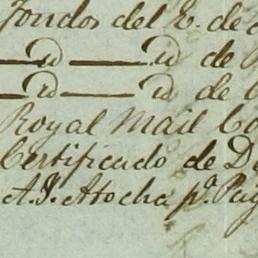 Fondos del E. de
id id de
id id de
Royal Mail Co
Certificado de De
A.J. Atocha p.ª Pag